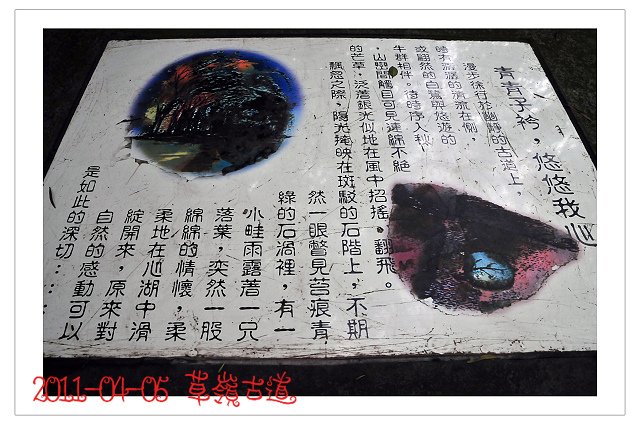 青青子衿，悠悠我心
漫步徐行於幽靜的古道上，
時有潺潺的清流在側，
或翩然的白鷺與悠遊的
牛群相伴，待時序入秋
，山巒間觸目可見連綿不絕
的芒草，泛著銀光似地在風中招搖、翻飛。
飄忽之際，陽光掩映在斑駁的石階上，不期
然一眼瞥見苔痕青
綠的石渦裡，有一
小畦雨露著一只
落葉，突然一股
綿綿的情懷，柔
柔地在心湖中滑
綻開來，原來對
自然的感動可以
是如此的深切……
2011-04-05 草嶺古道